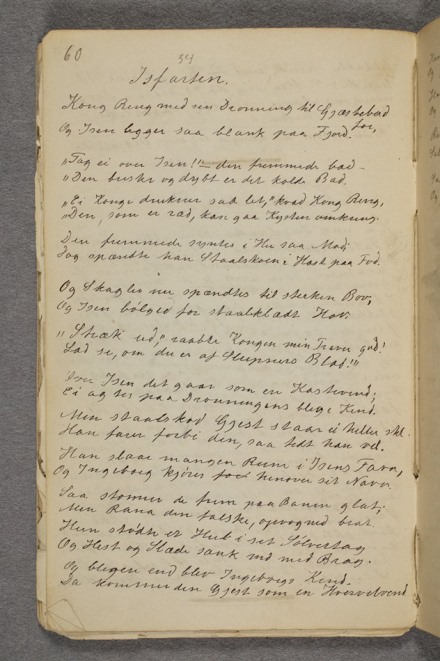 60
54
Isfarten.
Kong Ring med sin Dronning til Gjæstebud
for,
Og Isen ligger saa blank paa Fjord.
"Tag ei over Isen!" den fremmede bad
"Den brister og dybt er det kolde Bad.
"Ei Konge drukner saa let," kvad Kong Ring,
"Den, som er ræd, kan gaa Kysten omkring.
Den fremmede syntes i Hu saa Mod
Dog spændte han Staalskoen i Hast paa Fod.
Og Skagler nu spændtes til stærken Bov,
Og Isen bølged for staalklædt Hov.
"Stræk ud," raabte Kongen min Traver god!
Lad se, om du er af Sleipners Blod!"
Over Isen det gaar som en Kastevind;
Ei agtes paa Dronningens blege Kind.
Men staalskod Gjest staar ei heller stil
Han farer forbi den, saa tidt han vil.
Han slaar mangen Rune i Isens
Og Ingeborg kjøres henover sit Navn
Saa stormer de frem paa Banen glat,
Men Rana den falske,
Hun stødte et Hul i sit Sølvertag
Og Hest og Slæde sank ned med Brag.
Og blegere end blev Ingeborgs Kind.
Da kommer den Gjest som en Hvirvelvind